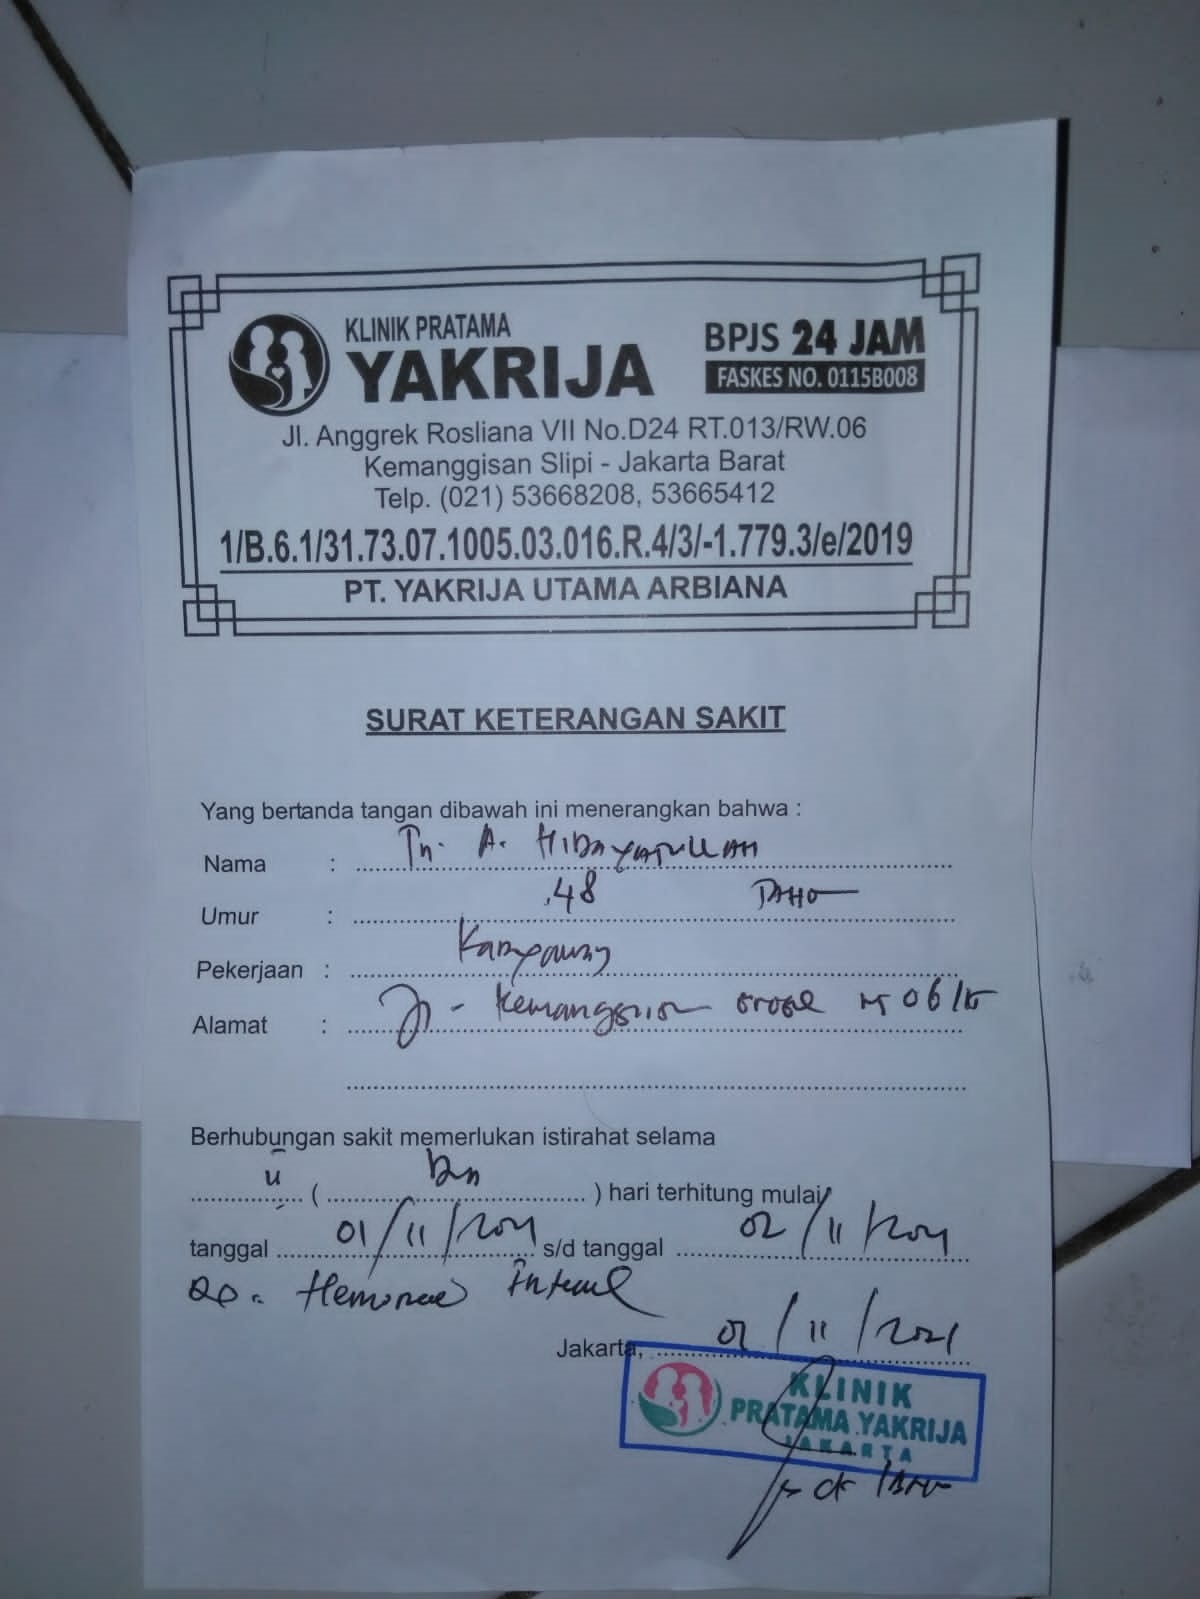 KLINIK PRATAMA
YAKRIJA
BPJS 24 JAM
FASKES NO. 0115B008
Jl. Anggrek Rosliana VII No.D24 RT.013/RW.06
Kemanggisan Slipi - Jakarta Barat
Telp. (021) 53668208, 53665412
1/B.6.1/31.73.07.1005.03.016.R.4/3/-1.779.3/e/2019
PT. YAKRIJA UTAMA ARBIANA
SURAT KETERANGAN SAKIT
Yang bertanda tangan dibawah ini menerangkan bahwa :
Nama : Tn. A. HIDAYATULLAH
Umur : 48
Pekerjaan : Karyawan
Alamat : Jl - Kemanggisan
Berhubungan sakit memerlukan istirahat selama
( ) hari terhitung mulai
tanggal 01/11/2021 s/d tanggal 02/11/2021
Jakarta, /11/2021
KLINIK
PRATAMA YAKRIJA
JAKARTA